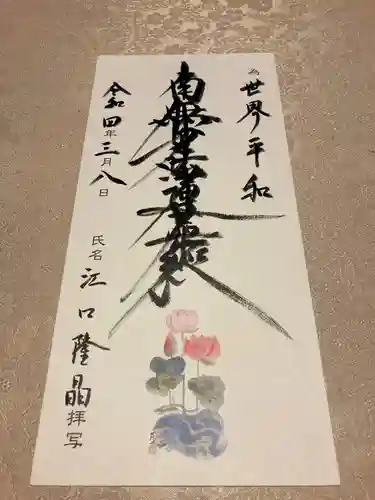 為 世界平和
南無妙法蓮華経
令和四年三月八日
氏名 江口隆晶 拝写